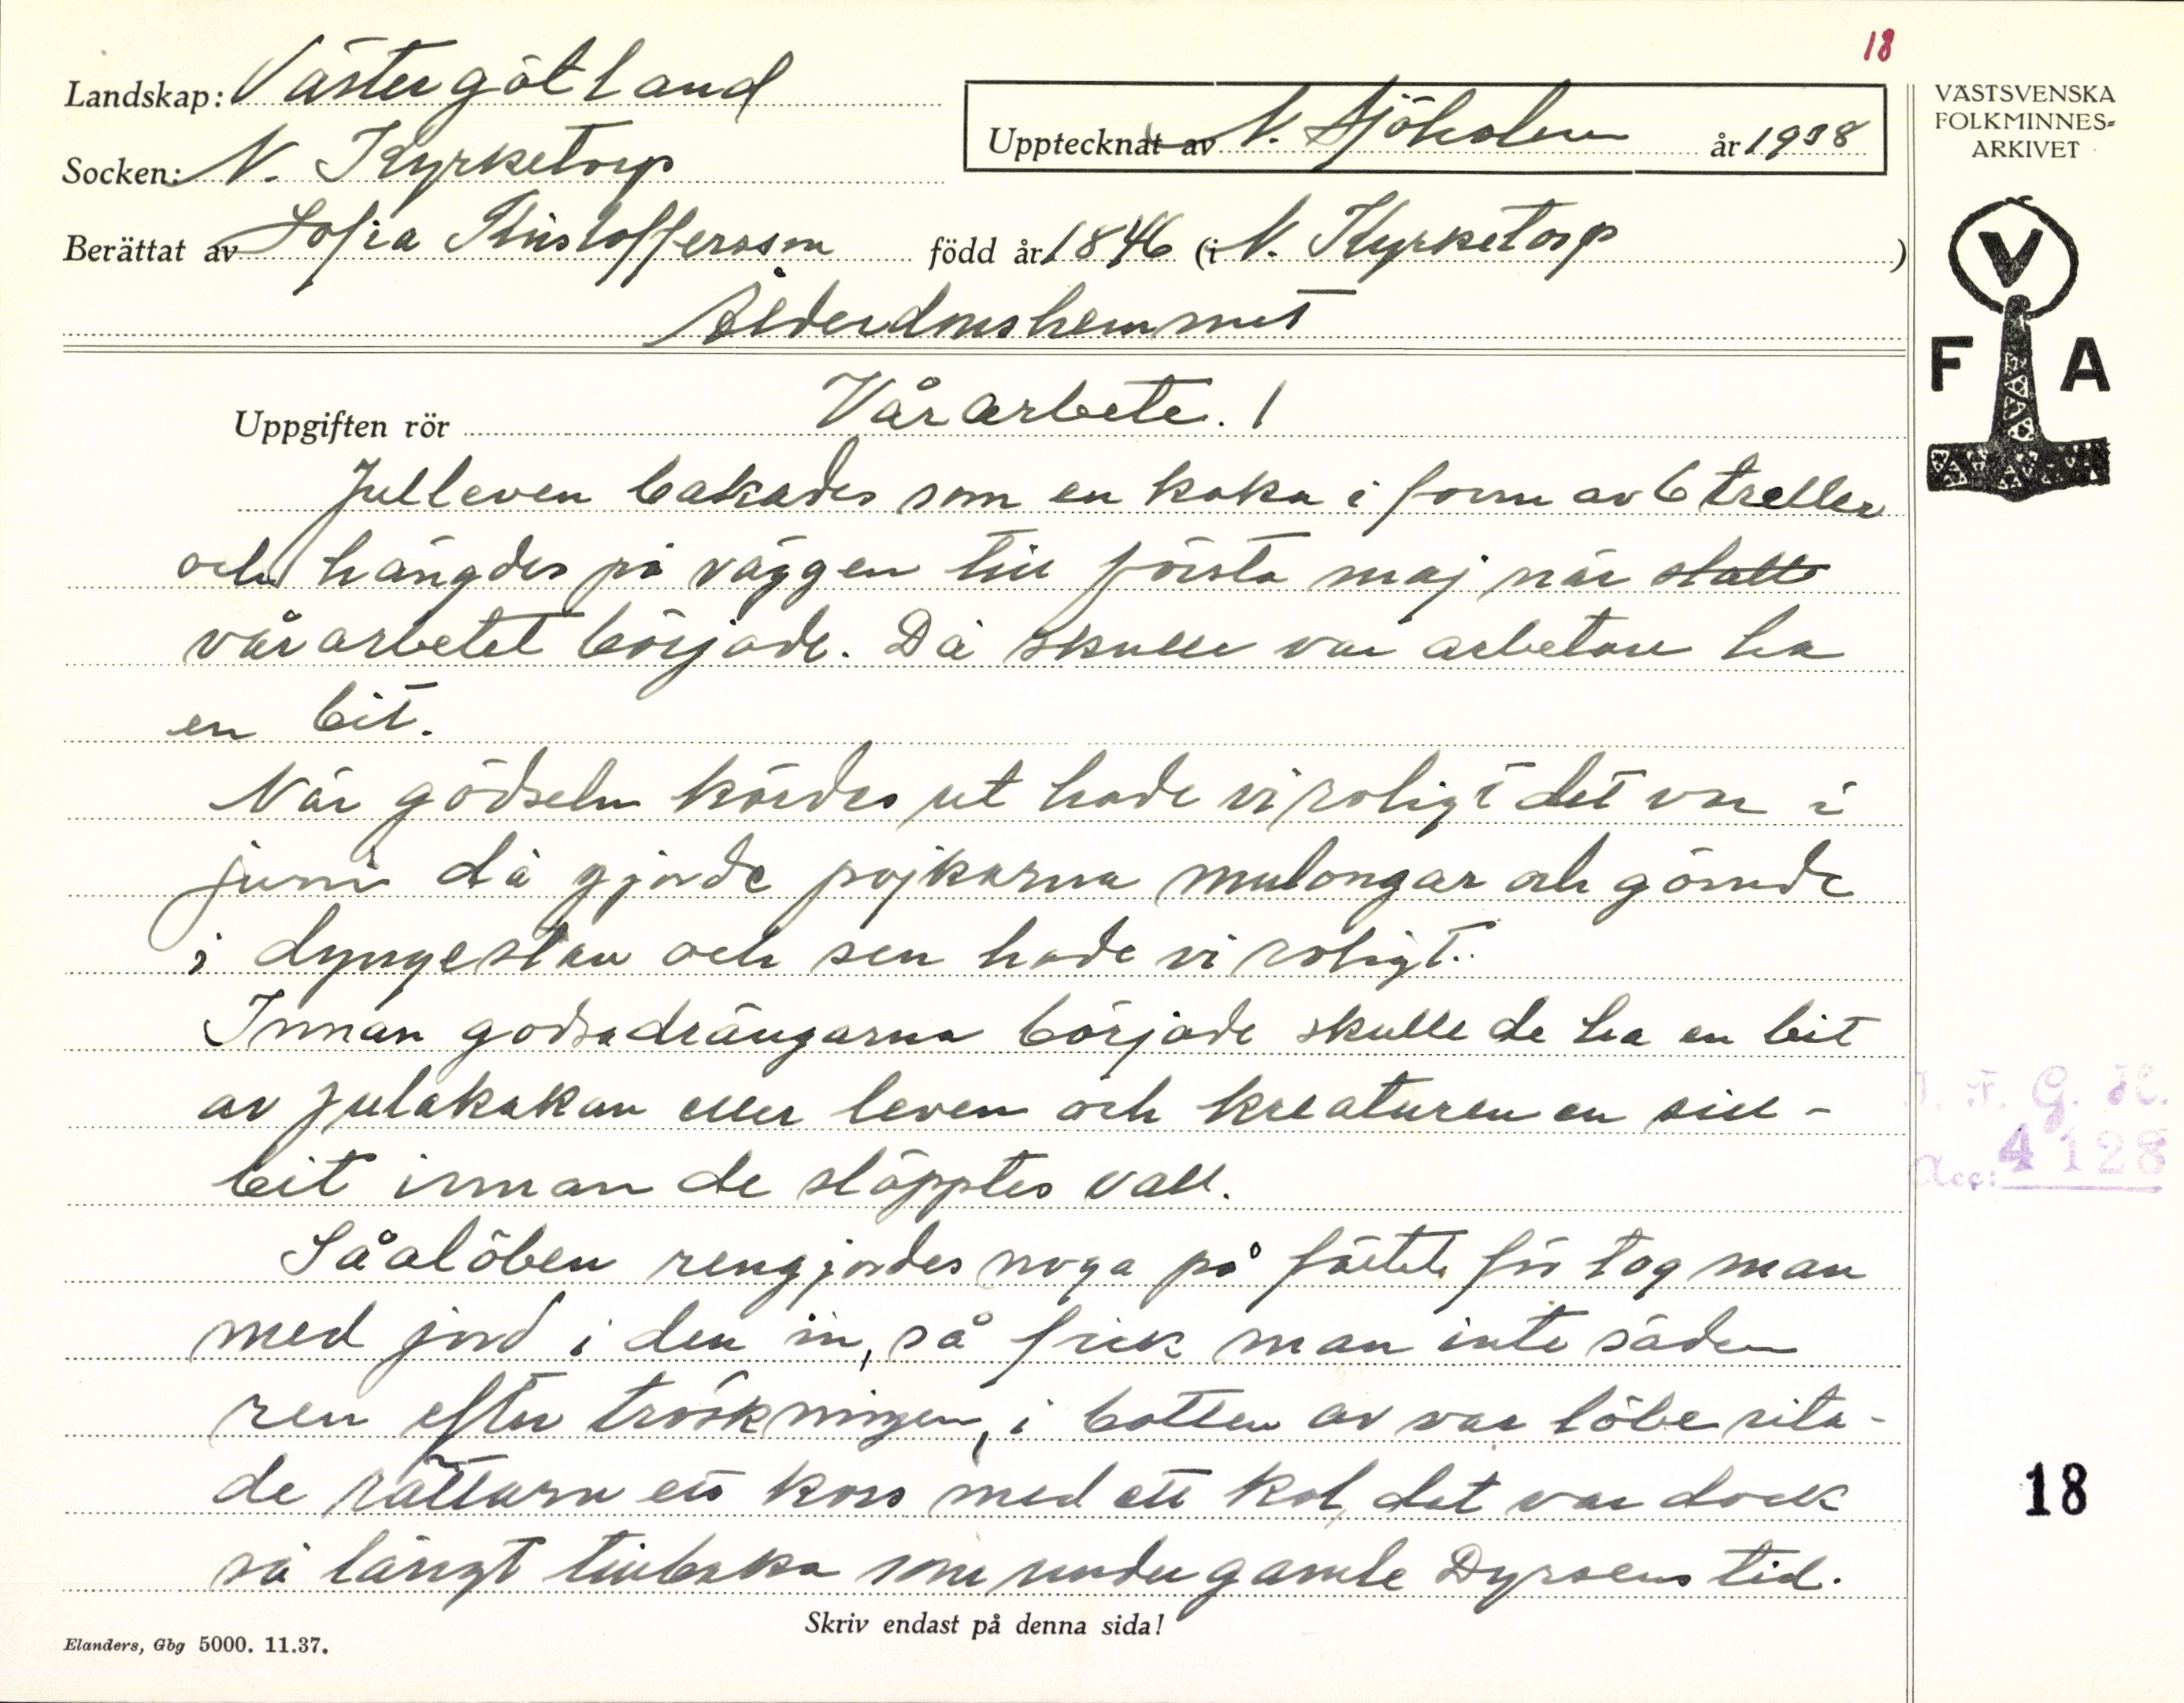 18
Landskap: Västergötland
Upptecknat av N. Sjöholm år 1938
VÄSTSVENSKA
FOLKMINNES-
ARKIVET
Socken: N. Kyrketorp
Berättat av Sofia Kristoffersson född år 1846 (i N. Kyrketorp )
Ålderdomshemmet
V
F A
Uppgiften rör Vårarbete. 1
Julleven bakades som en kaka i form av 6 treller
och hängdes på väggen till första maj när
vårarbetet började. Då skulle var arbetare ha
en bit.
När gödseln kördes ut hade vi roligt det var i
juni då gjorde pojkarna mulongar och gömde
i dyngestan och sen hade vi roligt.
Innan godsadrängarna började skulle de ha en bit
av julakakan eller leven och kreaturen en sill-
bit innan de släpptes vall.
Såalöben rengjordes noga på fältet för tog man
med jord i den in, så fick man inte säden
ren efter tröskningen, i botten av var löbe rita-
de rättarn ett kors med ett kol, det var dock
så långt tillbaka som under gamle Dyrsens tid.
I. F. G. H.
Acc: 4128
18
Skriv endast på denna sida!
Elanders, Gbg 5000. 11.37.